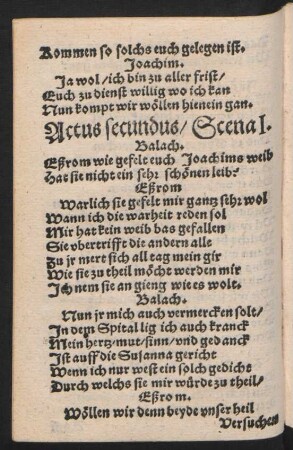 Kommen so solchs euch gelegen ist.
Joachim.
Ja wol / ich bin zu aller frist /
Euch zu dienst willig wo ich kan
Nun kompt wir wöllen hienein gan.
Actus secundus / Scena I.
Balach.
Eßrom wie gefelt euch Joachims weib
Hat sie nicht ein sehr schönen leib?
Eßrom
Warlich sie gefelt mir gantz sehr wol
Wann ich die warheit reden sol
Mir hat kein weib bas gefallen
Sie vbertrifft die andern alle
Zu jr mert sich all tag mein gir
Wie sie zu theil möcht werden mir
Ich nem sie an gieng wie es wolt.
Balach.
Nun jr mich auch vermercken solt /
In dem Spital lig ich auch kranck
Mein hertz / mut / sinn / vnd gedanck
Ist auff die Susanna gericht
Wenn ich nur west ein solch gedicht
Durch welchs sie mir würde zu theil /
Eßrom.
Wöllen wir denn beyde vnser heil
Versuchen